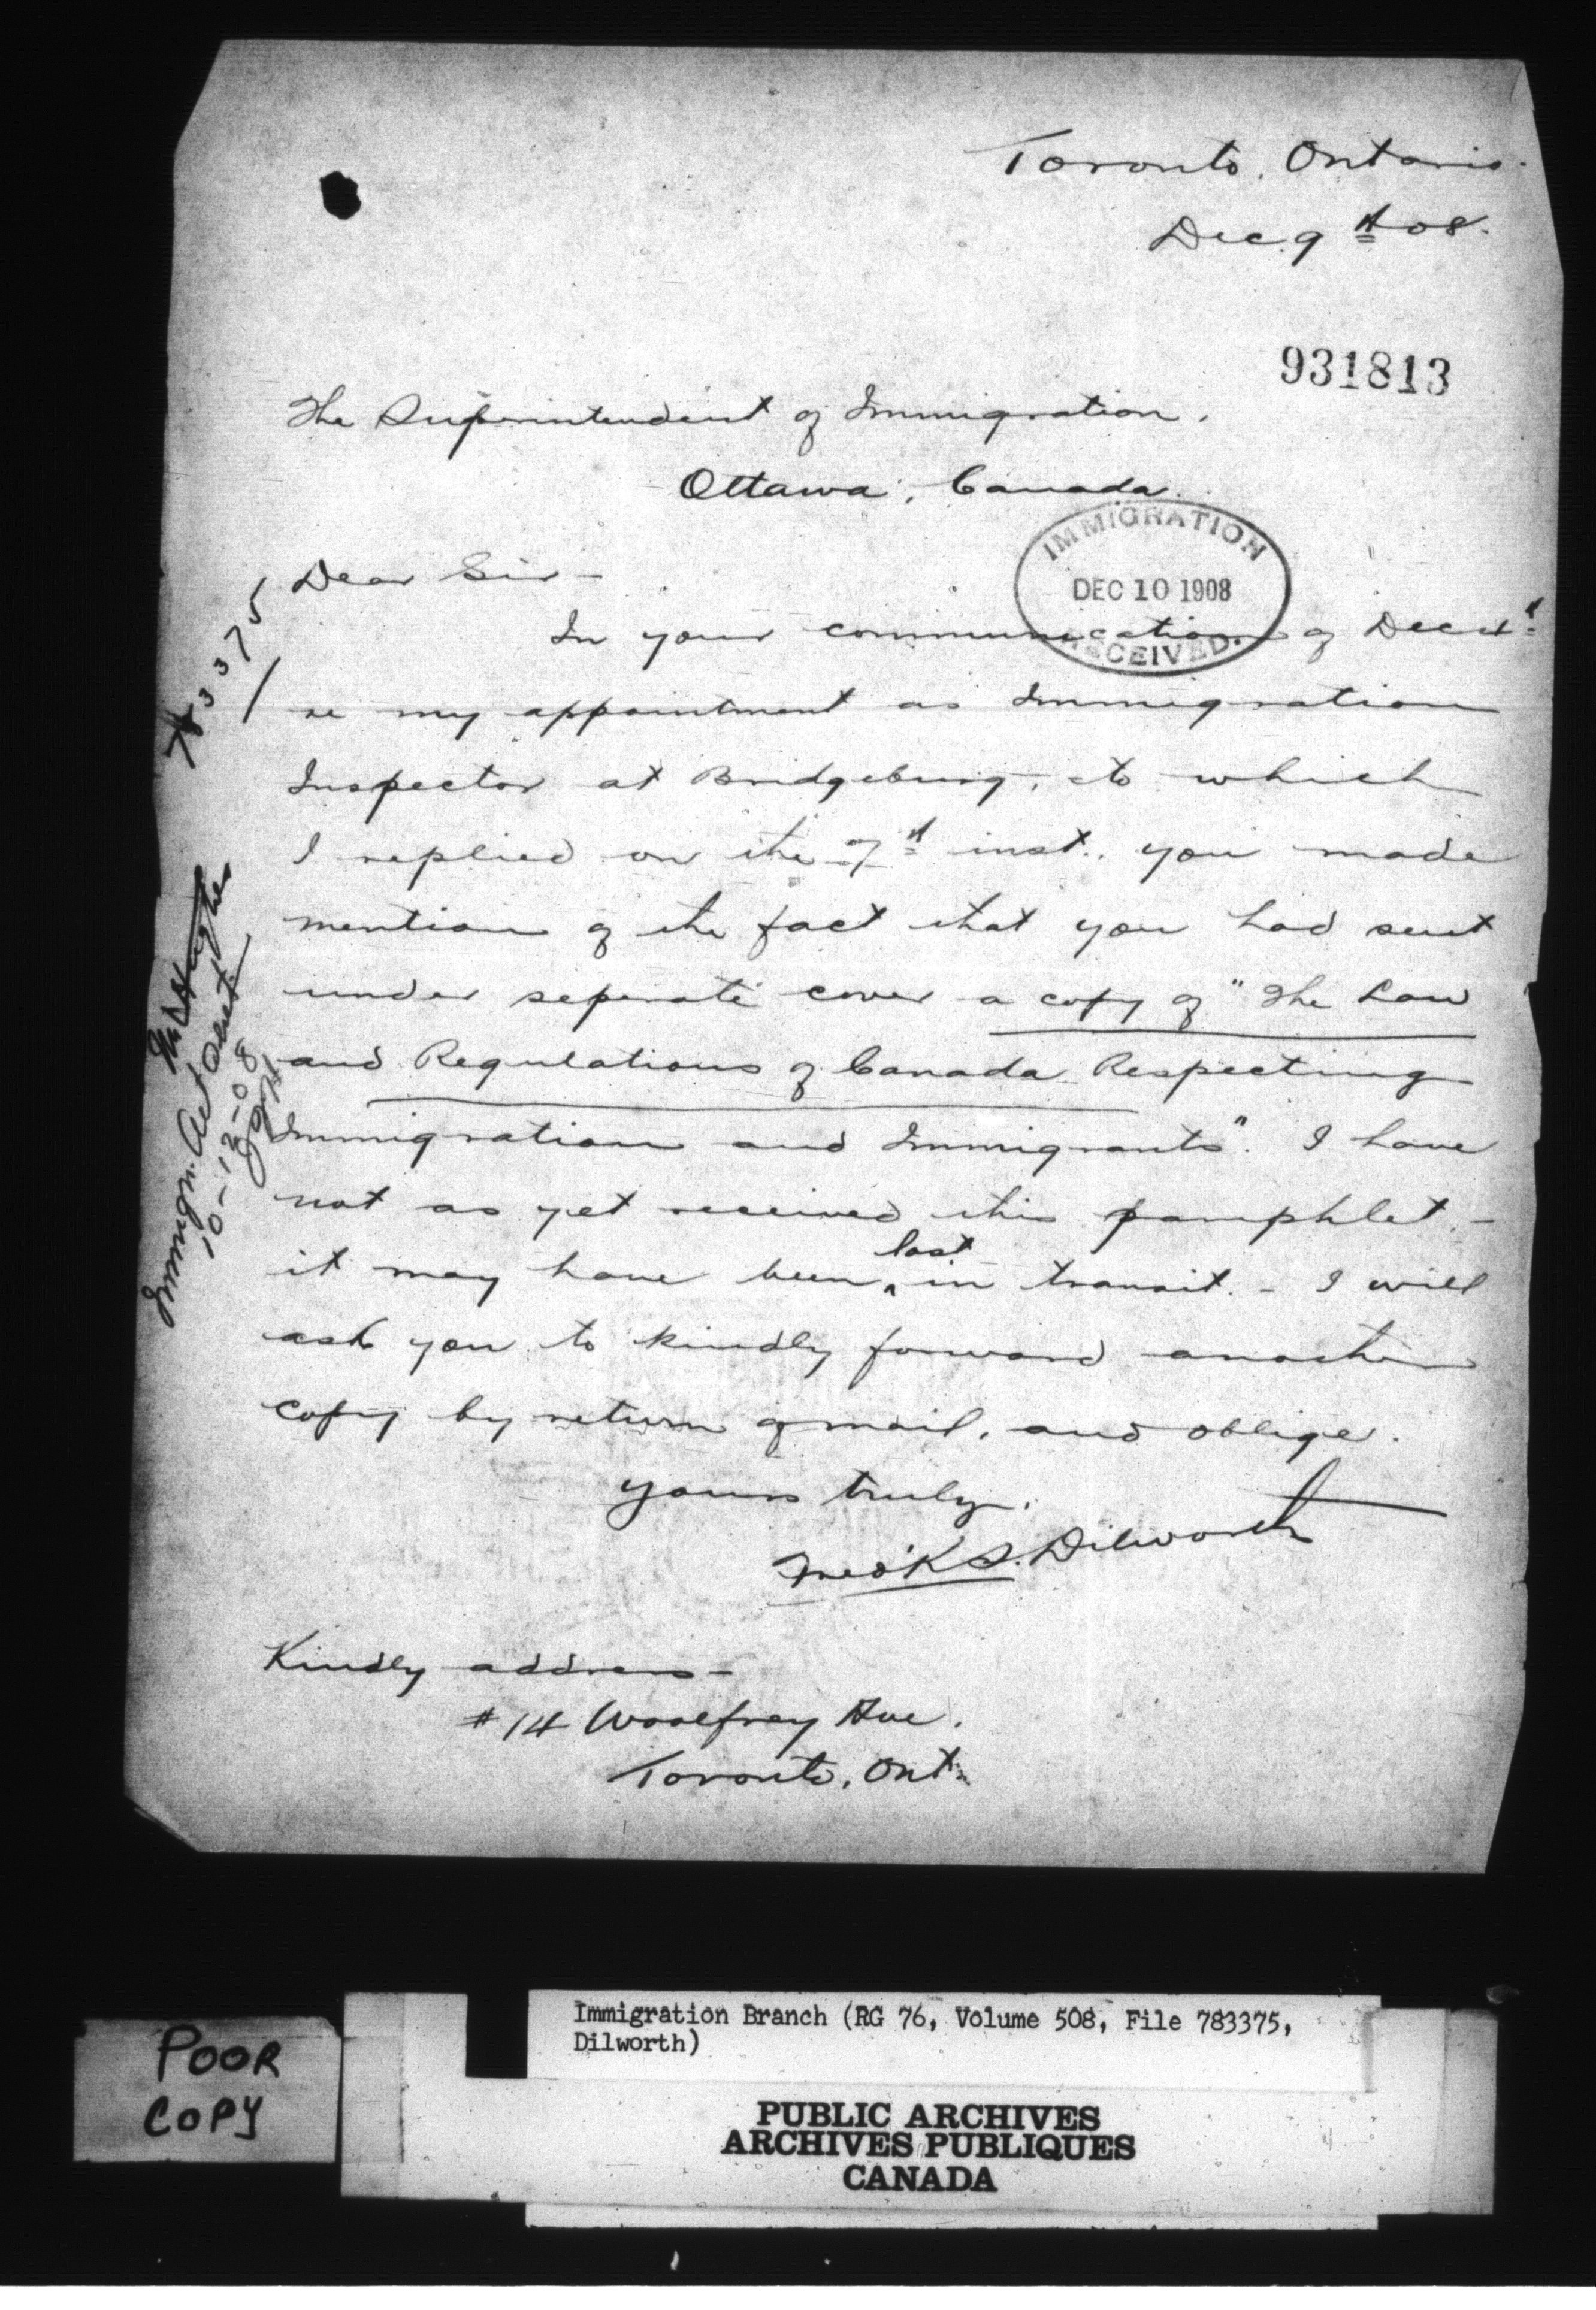 Toronto, Ontario.
Dec. 9th 08.
931813
The Superintendent of Immigration,
Ottawa, Canada.
IMMIGRATION
DEC 10 1908
RECEIVED.
Dear Sir -
In your communication of Dec
re my appointment as Immigration
Inspector at Bridgeburg, to which
I replied on the 7th inst., you made
mention of the fact that you had sent
under seperate cover a copy of "The Law
and Regulations of Canada Respecting
Immigration and Immigrants". I have
not as yet received this pamphlet, -
it may have been lost in transit. - I will
ask you to kindly forward another
copy by return of mail, and oblige.
yours truly,
Fred'k S. Dilworth
Kindly address -
#14 Woolfrey Ave.
Toronto, Ont.
783375
Mr Hughes
Immign. Act Sent.
10-12-08
Immigration Branch (RG 76, Volume 508, File 783375,
Dilworth)
POOR
COPY
PUBLIC ARCHIVES
ARCHIVES PUBLIQUES
CANADA